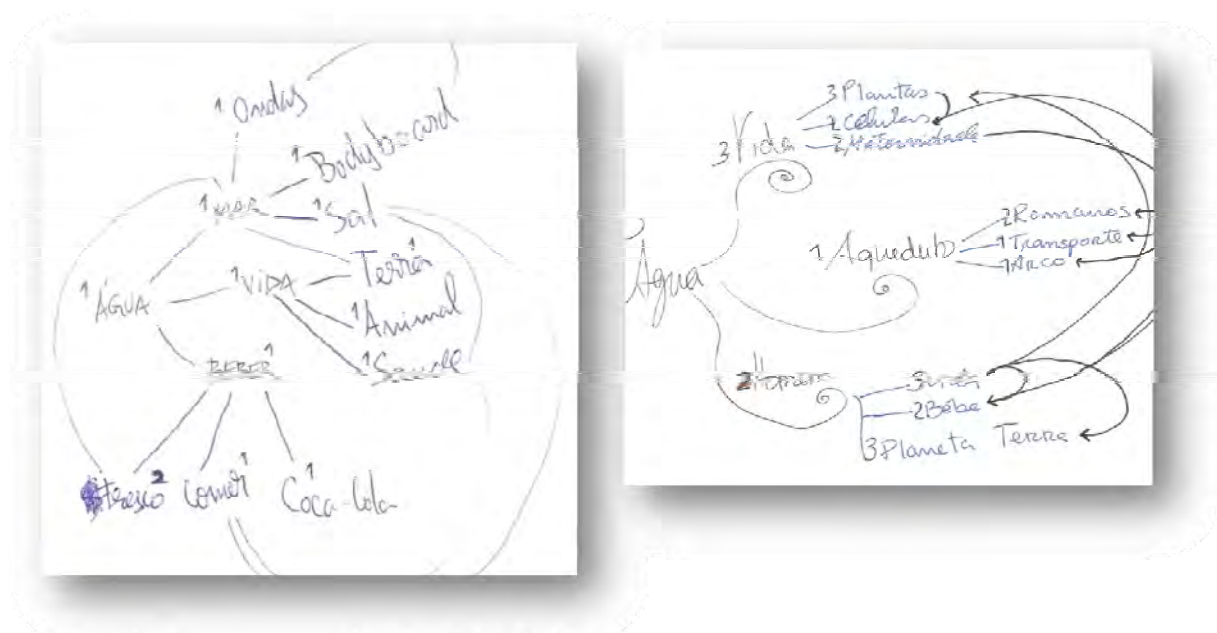 1 Ondas
1 Bodyboard
1 MAR
1 Sol
Terra
1 ÁGUA
1 VIDA
1 Animal
1 Saude
BEBER 1
fresco 2
comer 1
1 Coca-Cola
Água
3 Vida
3 Plantas
2 Células
2 Maternidade
1 Aqueduto
2 Romanos
1 Transporte
1 Arco
2 Homem
2 Bebe
3 Planeta Terra